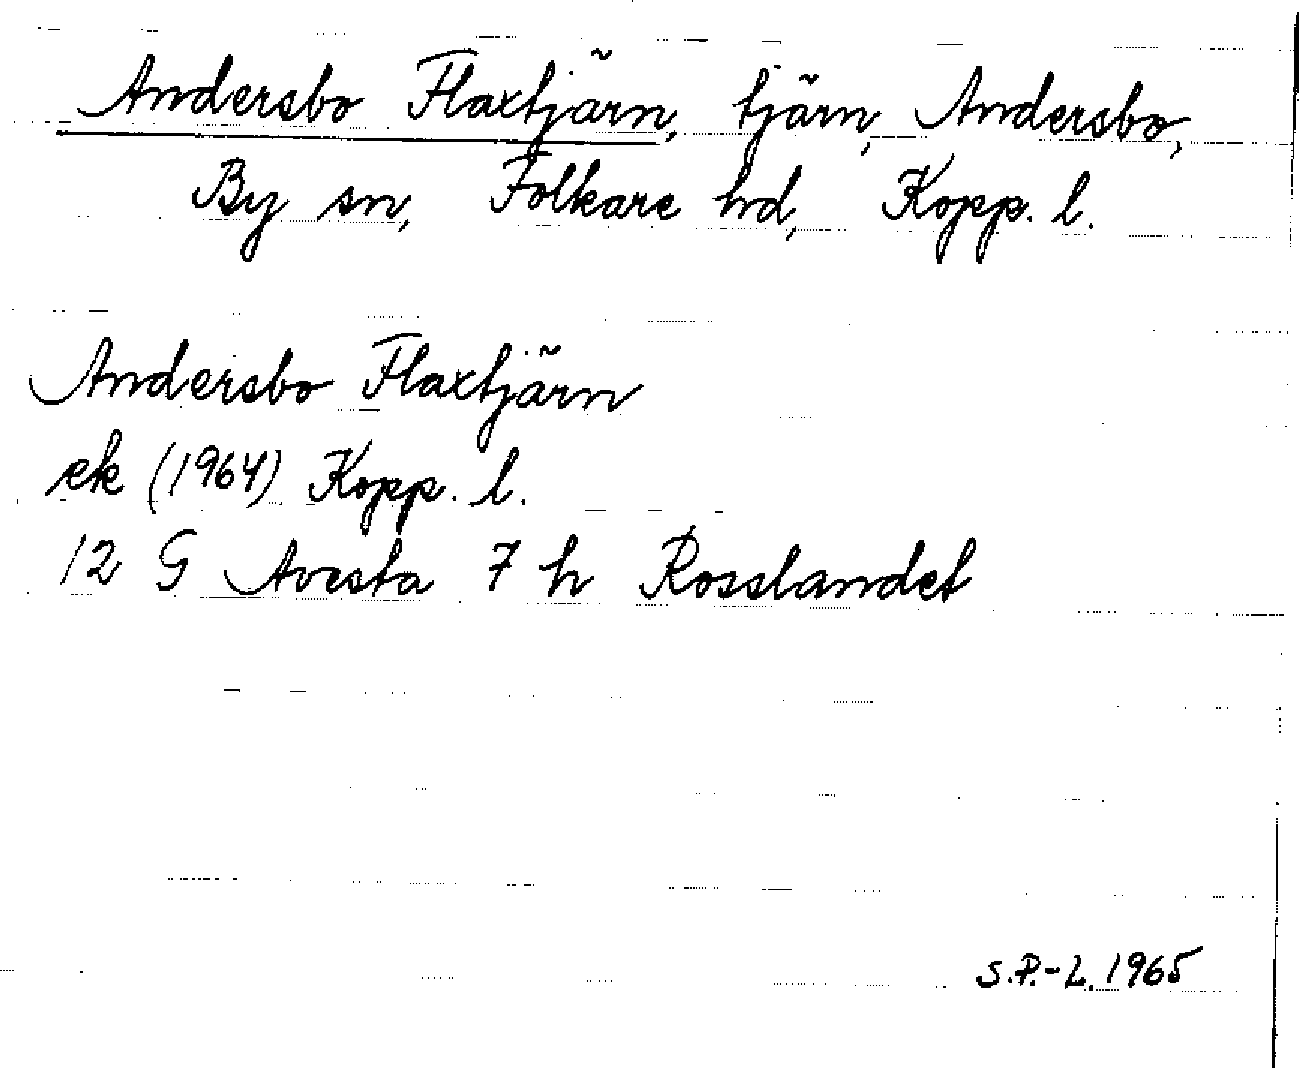 Andersbo Flaxtjärn, tjärn, Andersbo,
By sn, Folkare hd, Kopp. l.
Andersbo Flaxtjärn
ek (1964) Kopp. l.
12 G Avesta 7 h Rosslandet
S.P.-L. 1965